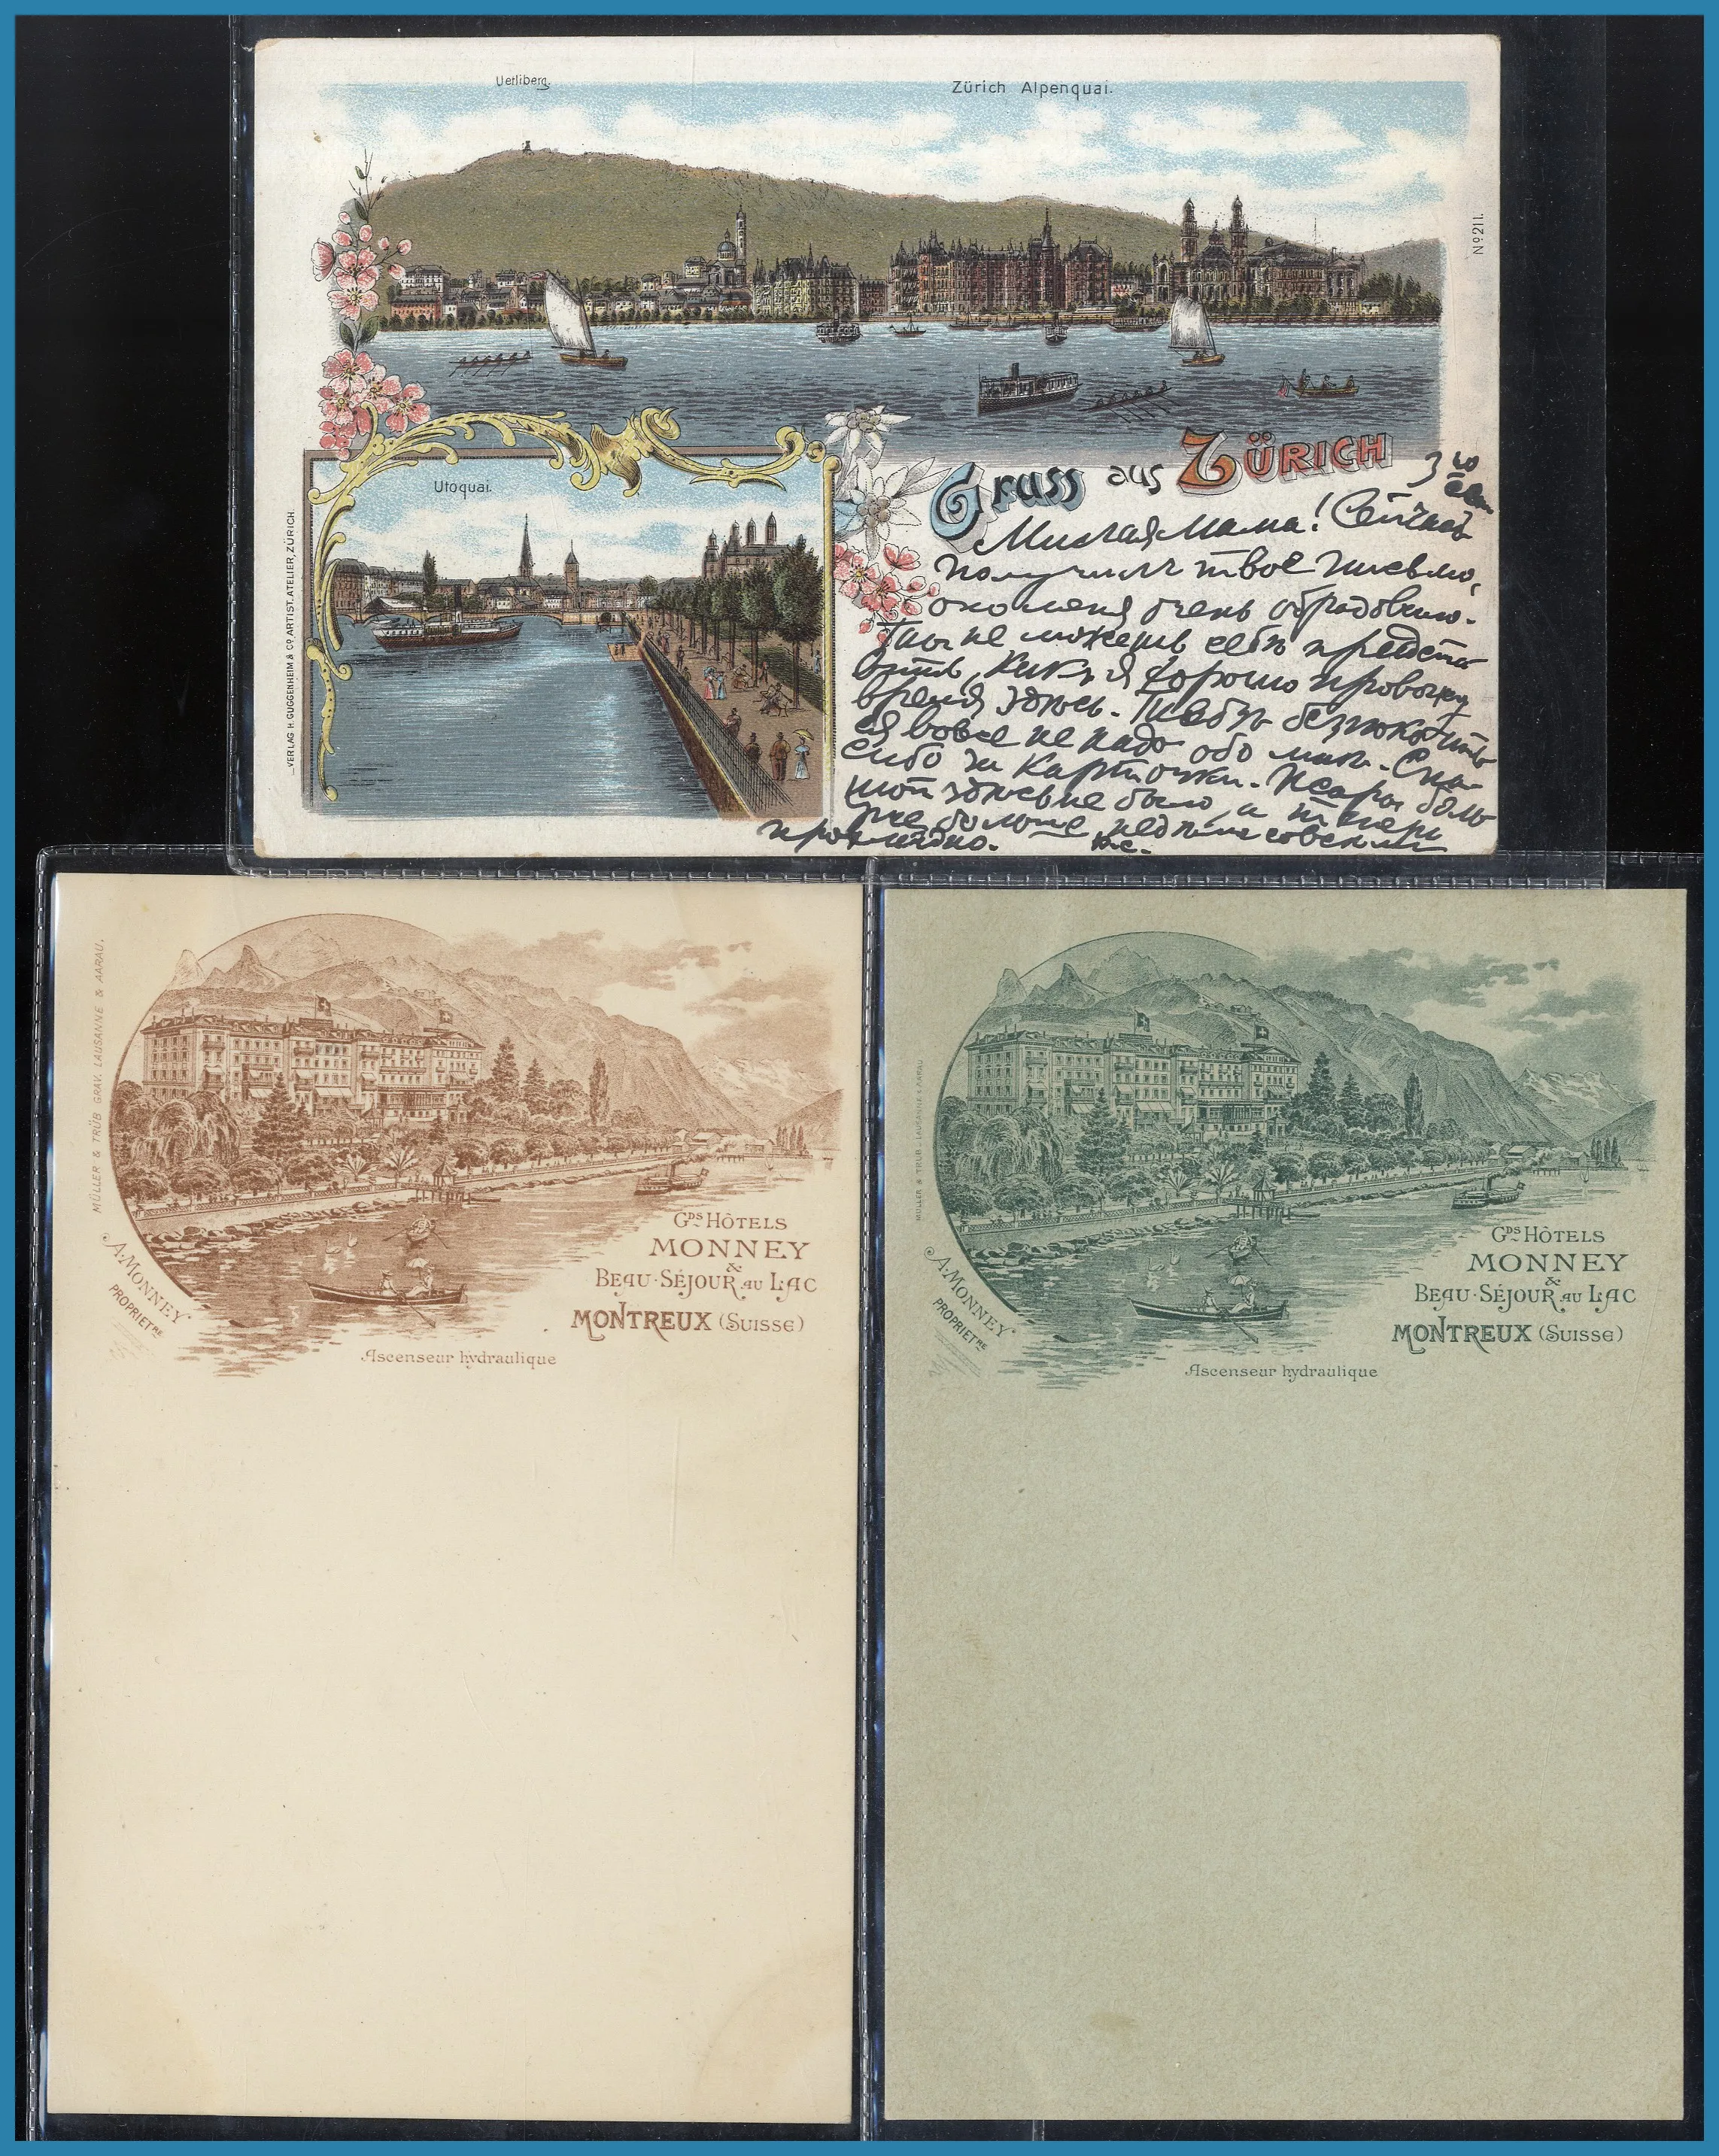 Uetliberg.
Zürich Alpenquai.
No 211.
Utoquai.
VERLAG H. GUGGENHEIM & Co, ARTIST. ATELIER, ZÜRICH.
Gruss aus ZÜRICH
3 го
Милая Мама! Сейчас
получилъ твое письмо,
оно меня очень обрадовало.
Ты не можешь себѣ предста
вить, какъ я хорошо провожу
время здѣсь. Тебѣ безпокоить
ся вовсе не надо обо мнѣ. Спа
сибо за карточки. Жары боль
шой здѣсь не было, а теперь
уже больше недѣли совсѣмъ
прохладно.
MÜLLER & TRÜB GRAV. LAUSANNE & AARAU.
GDS HÔTELS
MONNEY
&
BEAU-SÉJOUR AU LAC
MONTREUX (SUISSE)
A. MONNEY
PROPRIETRE
Ascenseur hydraulique
MÜLLER & TRÜB - LAUSANNE & AARAU
GDS HÔTELS
MONNEY
&
BEAU-SÉJOUR AU LAC
MONTREUX (SUISSE)
A. MONNEY
PROPRIETRE
Ascenseur hydraulique